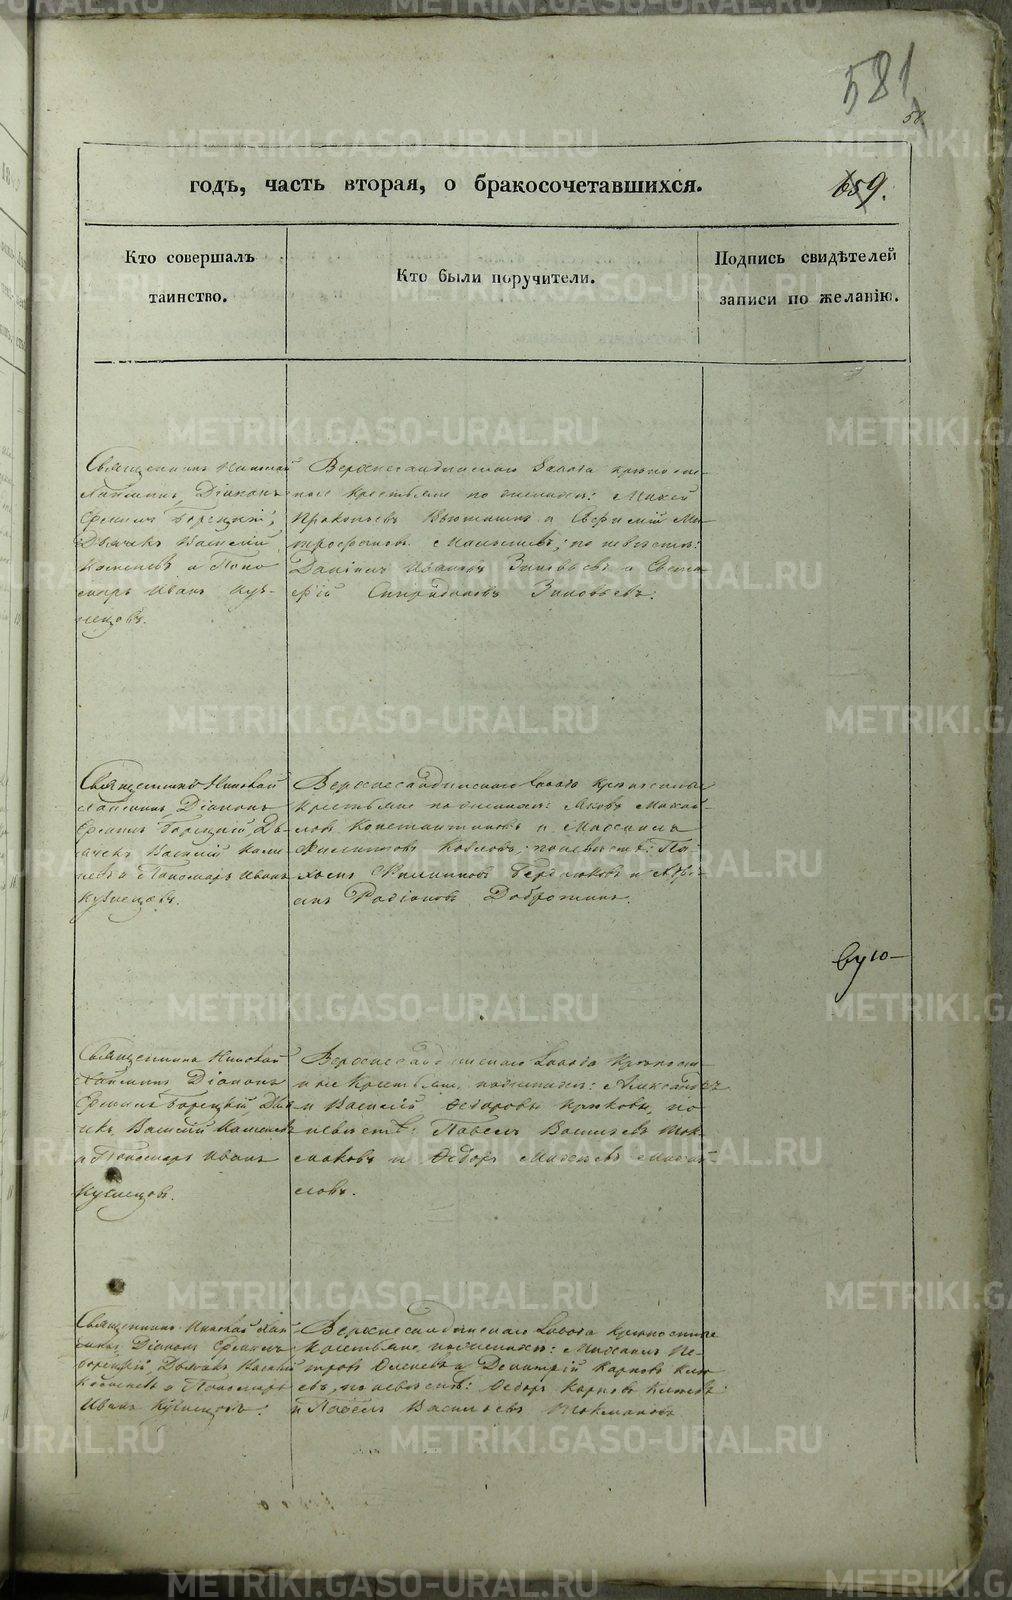 581
годъ, часть вторая, о бракосочетавшихся.
659.
Кто совершалъ
таинство.
Кто были поручители.
Подпись свидѣтелей
записи по желанію.
Священникъ Николай
Діаконъ
Ермилъ Борецкій,
Дьячекъ Василій
Каменевъ и Поно
марь Иванъ Куз-
нецовъ.
Верхнесалдинскаго Завода крѣпост-
ные крестьяне по женихѣ: Мокей
Прокопьевъ и Ефимій Ми-
трофановъ по невѣстѣ:
Даніилъ Ивановъ Зиновьевъ и Евста-
фій Спиридоновъ Зиновьевъ.
Священникъ Николай
Діаконъ
Ермилъ Борецкій, Дь-
ячекъ Василій Каме-
невъ и Пономарь Иванъ
Кузнецовъ.
Верхнесалдинскаго Завода крѣпостные
крестьяне по женихѣ: Яковъ Михай-
ловъ Константиновъ и Михаилъ
Филиповъ Козловъ; по невѣстѣ: Па-
хомъ Филиповъ и
Родіоновъ
вую
Священникъ Николай
Діаконъ
Ермилъ Борецкій, Дья
чекъ Василій Каменевъ
и Пономарь Иванъ
Кузнецовъ.
Верхнесалдинскаго Завода крѣпост-
ные крестьяне, по женихѣ: Александръ
и Василій Ѳедоровы Крюковы, по
невѣстѣ: Павелъ Васильевъ Ток-
маковъ и Ѳедоръ
ловъ.
Священникъ Николай
Діаконъ Ермилъ
Борецкій, Дьячекъ Василій
Каменевъ и Пономарь
Иванъ Кузнецовъ.
Верхнесалдинскаго Завода крѣпостные
крестьяне, по женихѣ: Михаилъ Пе-
тровъ Оленевъ и Дмитрій Карповъ Клю-
евъ, по невѣстѣ: Ѳедоръ Карповъ Клюевъ
и Павелъ Васильевъ Токмаковъ
METRIKI.GASO-URAL.RU